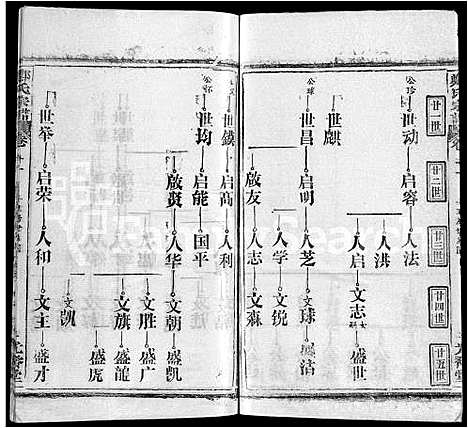 鄭氏宗譜
廿一世
廿二世
廿三世
廿四世
廿五世
公珍
世动
启容
人法
人洪
人启
文志
盛世
世麒
公球
世昌
启明
人芝
文球
人学
文锐
啟友
人志
文森
世鏌
启高
人利
世均
启能
国平
啟賢
人华
文朝
盛凯
文胜
盛广
文旗
盛龍
盛虎
文凯
世举
启荣
人和
文主
盛才
鄭氏宗譜